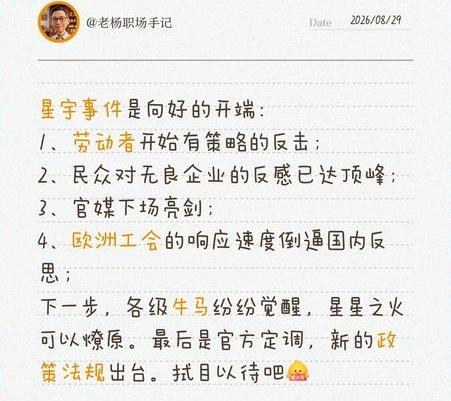 @老杨职场手记
Date 2026/08/29
星宇事件是向好的开端：
1、劳动者开始有策略的反击；
2、民众对无良企业的反感已达顶峰；
3、官媒下场亮剑；
4、欧洲工会的响应速度倒逼国内反
思；
下一步，各级牛马纷纷觉醒，星星之火
可以燎原。最后是官方定调，新的政
策法规出台。拭目以待吧